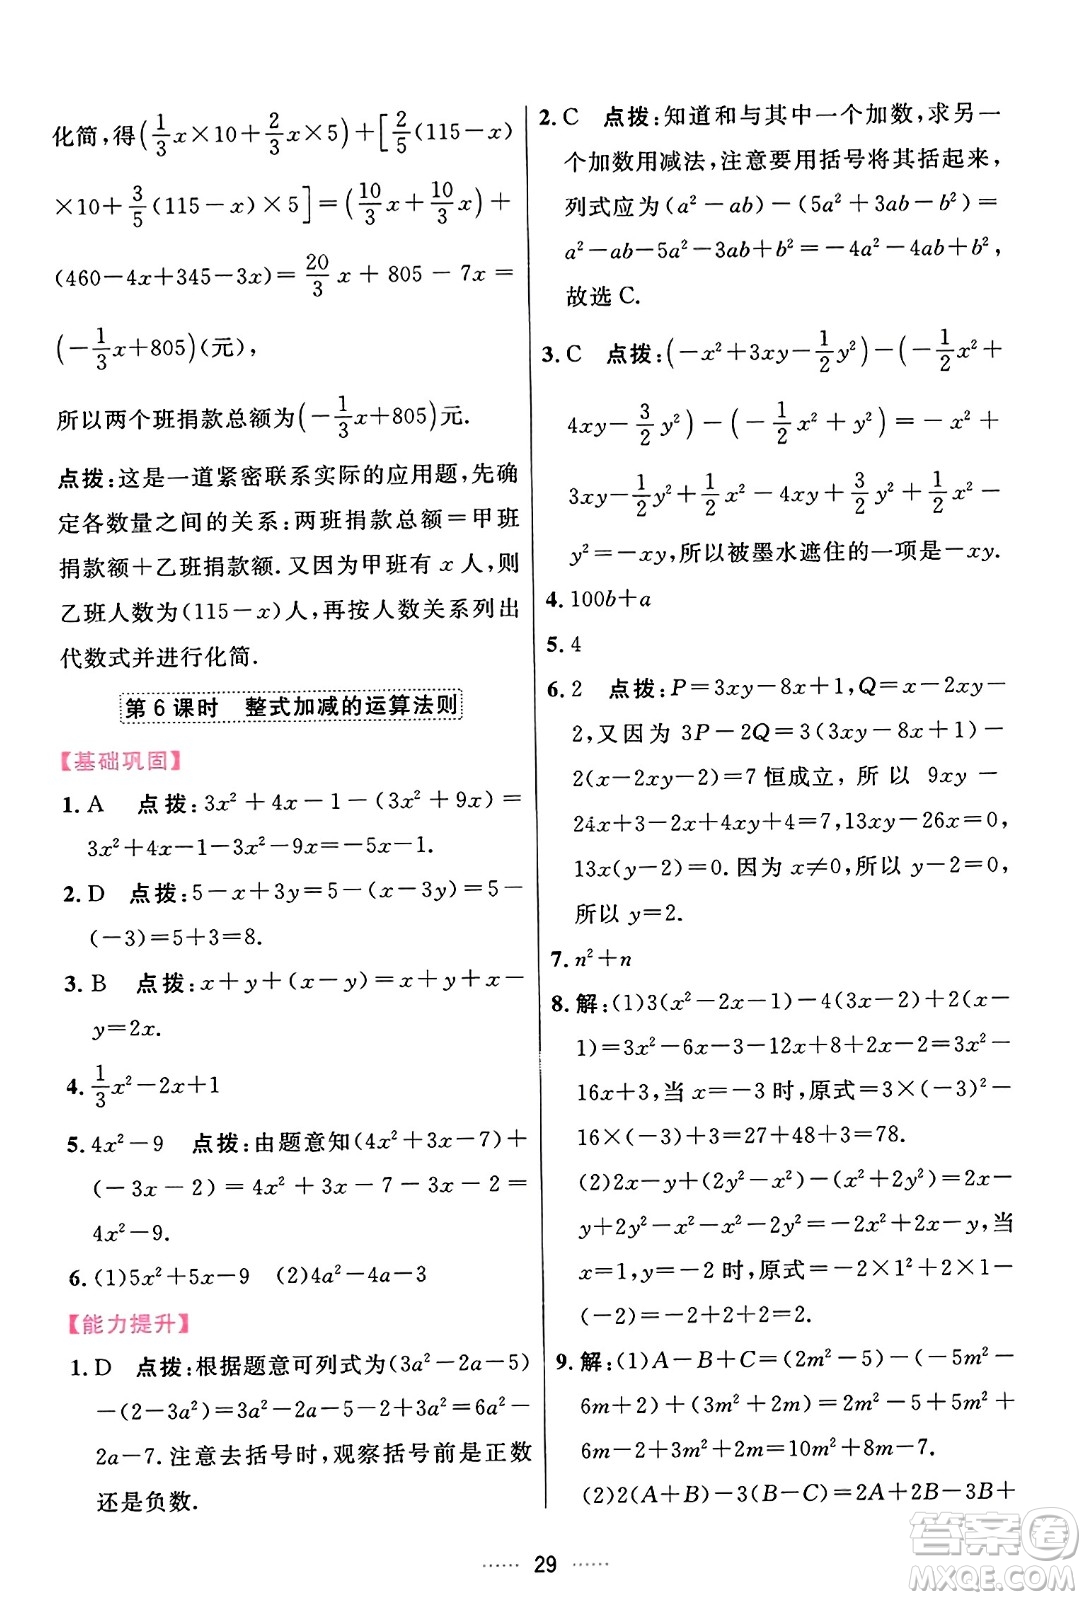 化简,得(1/3x×10+2/3x×5)+[2/5(115-x)
×10+3/5(115-x)×5]=(10/3x+10/3x)+
(460-4x+345-3x)=20/3x+805-7x=
(-1/3x+805)(元),
所以两个班捐款总额为(-1/3x+805)元.
点拨:这是一道紧密联系实际的应用题,先确
定各数量之间的关系:两班捐款总额=甲班
捐款额+乙班捐款额.又因为甲班有x人,则
乙班人数为(115-x)人,再按人数关系列出
代数式并进行化简.
第6课时 整式加减的运算法则
【基础巩固】
1. A 点拨:3x²+4x-1-(3x²+9x)=
3x²+4x-1-3x²-9x=-5x-1.
2. D 点拨:5-x+3y=5-(x-3y)=5-
(-3)=5+3=8.
3. B 点拨:x+y+(x-y)=x+y+x-
y=2x.
4. 1/3x²-2x+1
5. 4x²-9 点拨:由题意知(4x²+3x-7)+
(-3x-2)=4x²+3x-7-3x-2=
4x²-9.
6. (1)5x²+5x-9 (2)4a²-4a-3
【能力提升】
1. D 点拨:根据题意可列式为(3a²-2a-5)
-(2-3a²)=3a²-2a-5-2+3a²=6a²-
2a-7.注意去括号时,观察括号前是正数
还是负数.
2. C 点拨:知道和与其中一个加数,求另一
个加数用减法,注意要用括号将其括起来,
列式应为(a²-ab)-(5a²+3ab-b²)=
a²-ab-5a²-3ab+b²=-4a²-4ab+b²,
故选C.
3. C 点拨:(-x²+3xy-1/2y²)-(-1/2x²+
4xy-3/2y²)-(-1/2x²+y²)=-x²+
3xy-1/2y²+1/2x²-4xy+3/2y²+1/2x²-
y²=-xy,所以被墨水遮住的一项是-xy.
4. 100b+a
5. 4
6. 2 点拨:P=3xy-8x+1,Q=x-2xy-
2,又因为3P-2Q=3(3xy-8x+1)-
2(x-2xy-2)=7恒成立,所以9xy-
24x+3-2x+4xy+4=7,13xy-26x=0,
13x(y-2)=0.因为x≠0,所以y-2=0,
所以y=2.
7. n²+n
8. 解:(1)3(x²-2x-1)-4(3x-2)+2(x-
1)=3x²-6x-3-12x+8+2x-2=3x²-
16x+3,当x=-3时,原式=3×(-3)²-
16×(-3)+3=27+48+3=78.
(2)2x-y+(2y²-x²)-(x²+2y²)=2x-
y+2y²-x²-x²-2y²=-2x²+2x-y,当
x=1,y=-2时,原式=-2×1²+2×1-
(-2)=-2+2+2=2.
9. 解:(1)A-B+C=(2m²-5)-(-5m²-
6m+2)+(3m²+2m)=2m²-5+5m²+
6m-2+3m²+2m=10m²+8m-7.
(2)2(A+B)-3(B-C)=2A+2B-3B+
29
答案卷
MXQE.COM